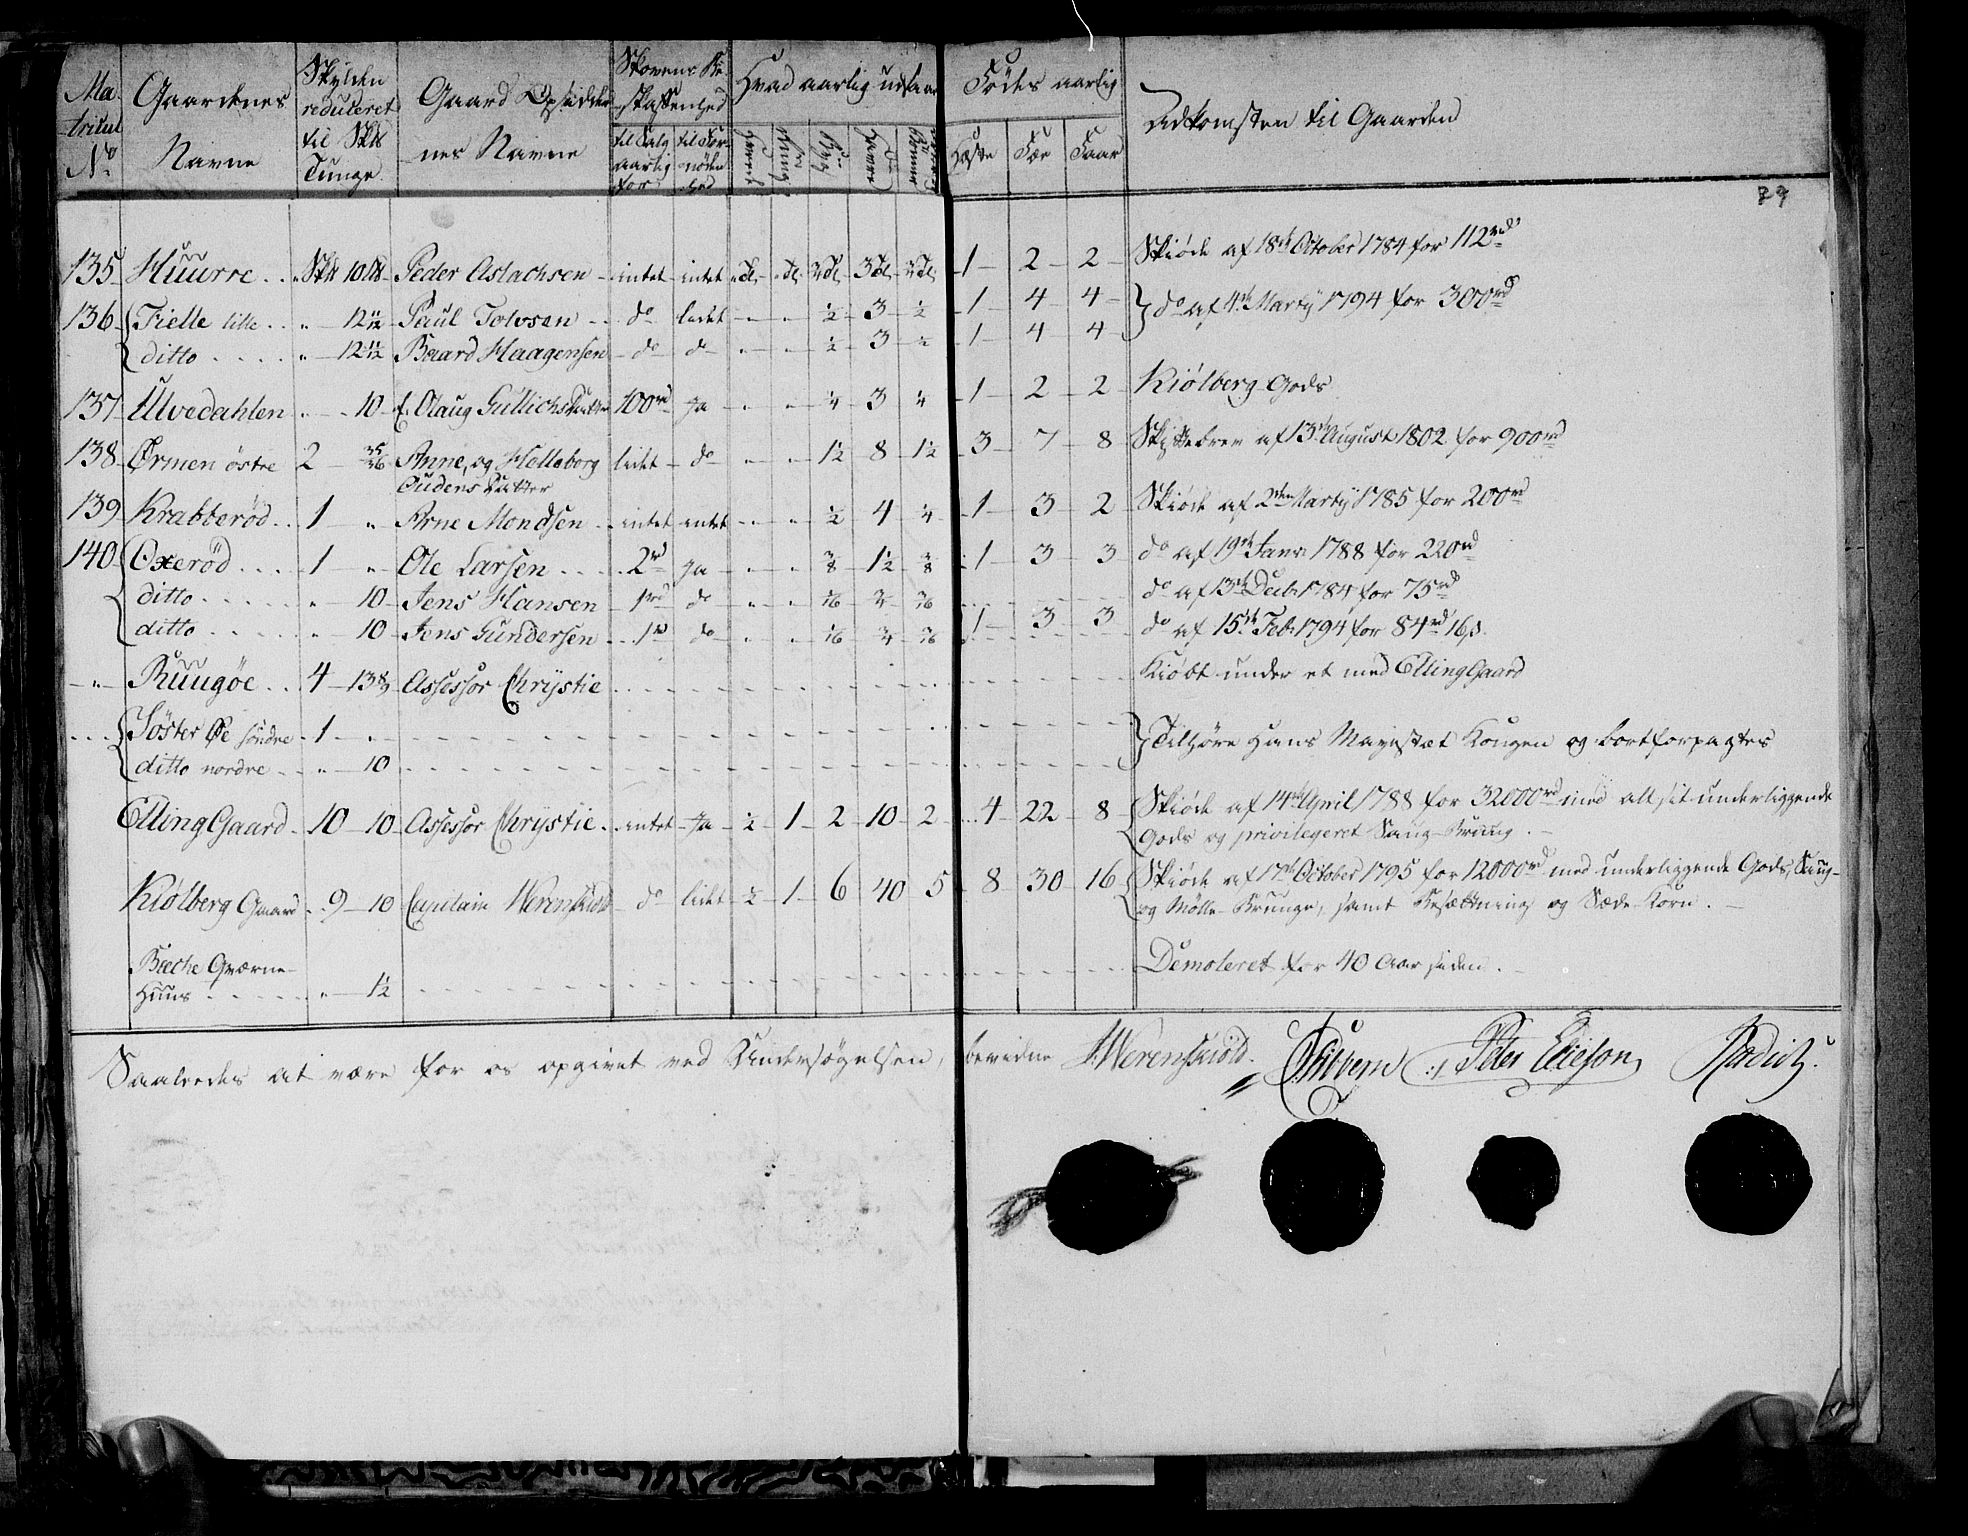 Ma
tricul
No
Gaardenes
Navne
Skylden
reduceret
til Sk℔
Tunge
Gaard Opsidder
nes Navne
Skovens Be
skaffenhed
til Salg
aarlig
for
til For
nøden
hed
Hvad aarlig udsaaes
Hveede
Rug
Byg
Havre
Fødes aarlig
Heste
Fæe
Faar
Adkomsten til Gaarden
79
135 Huurre . . " Sk℔ 10 ℔ Peder Aslachsen - intet - intet 3 Td 1 - 2 - 2 - Skiøde af 18de October 1784 for 112 rd
136 Fielle lille . . " - 12 11/12 Paul Tolvsen - do ledet - " - " - ½ - 3 - ½ - 1 - 4 - 4 - do af 4de Marty 1794 for 300 rd
ditto . . . . " - 12 11/12 Baard Haagensen - do - do - " - " - ½ - 3 - ½ - 1 - 4 - 4
137 Ulvedahlen " - 10 - E. Olaug Gullichs Datter 100 rd Ja - " - " - ¼ - 3 - ¼ - 1 - 2 - 2 Kiølberg Gods
138 Ørmen østre 2 - 35/36 Anne, og Helleborg ledet - do - " - " - 1½ 8 - 1½ - 3 - 7 - 8 Skiftebrev af 13de August 1802 for 900 rd
Oudens Datter
139 Krabberød . . 1 " - Arne Mondsen - intet - intet - " - " - ½ 4 - ¼ - 1 - 3 - 2 Skiøde af 2den Marty 1785 for 200 rd
140 Oxerød . . . . 1 " - Ole Larsen . . . . 2 rd Ja - " - " - 3/8 - 1½ - 3/8 - 1 - 3 - 3 do af 19de Janr. 1788 for 220 rd
ditto . . . . " - 10 - Jens Hansen - 1 rd do - " - " - 3/16 - ¾ - 3/16 do af 13de Decb. 1784 for 75 rd
ditto . . . . " - 10 - Jens Gundersen - 1 rd do - " - " - 3/16 - ¾ - 3/16 - 1 - 3 - 3 do af 15de Feb. 1794 for 84 rd 16 s.
" - Ruugøe . . 4 - 13 8/9 Assessor Chrystie Kiøbt under et med EllingGaard
Søster Øe søndre - 1 - " - Tilhører Hans Mayestæt Kongen og bortforpagtes
ditto nordre - " - 10
EllingGaard - 10 - 10 Assessor Chrystie . - intet - Ja - ½ - 1 - 2 - 10 - 2 - 4 - 22 - 8 Skiøde af 14de April 1788 for 32000 rd med alt sit underliggende
Gods og privilegeret Saug-Bruug . -
Kiølberg Gaard - 9 - 10 Capitain Werenskiold - do ledet - ½ - 1 - 6 - 40 - 5 - 8 - 30 - 16 Skiøde af 17de October 1795 for 12000 rd med underliggende Gods, Saug-
og Mølle-Bruuge, samt Besætning og Sæde-Korn . -
Bæche Qværne-
Huus . . . . " - 1½ Demoleret for 40 Aar siden . -
Saaledes at være for os opgivet ved Undersøgelsen, bevidne Werenskiold. Sibbern Peter Elieson Radich